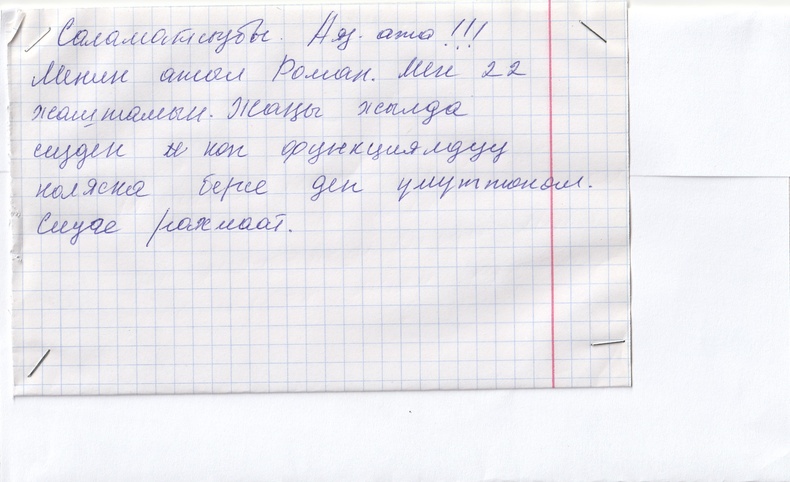 Саламатсызбы. Аяз. ата!!!
Менин атом Роман. Мен 22
жаштамын. Жаңы жылда
сизден көп функциялдуу
коляска берсе ден умуттоном.
Сизге рахмат.